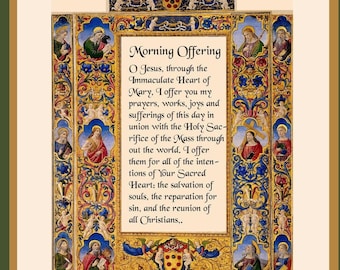 Morning Offering
O Jesus, through the
Immaculate Heart of
Mary, I offer you my
prayers, works, joys and
sufferings of this day in
union with the Holy Sac-
rifice of the Mass through
out the world. I offer
them for all of the inten-
tions of Your Sacred
Heart; the salvation of
souls, the reparation for
sin, and the reunion of
all Christians..